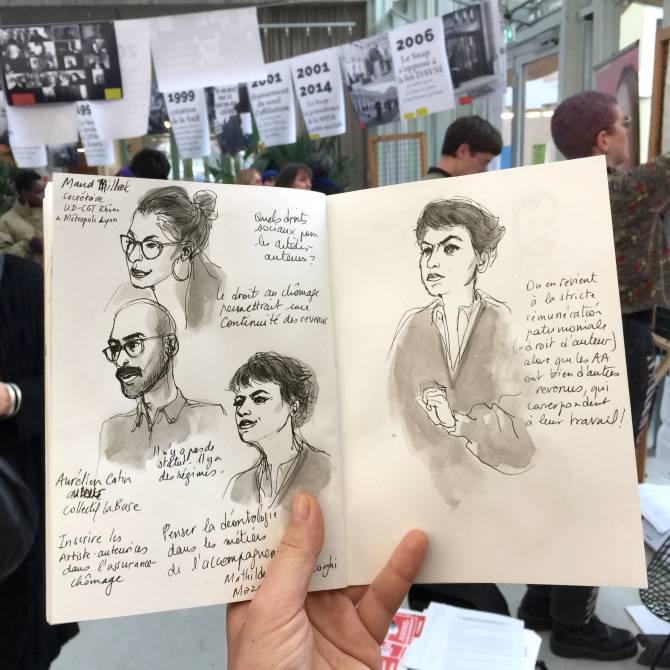 1999
création
de la Snif
2001
2001
2014
Le Snap
2006
Le Snap
s'oppose à
la loi DAVSI
Maud Millet
secrétaire
UD-CGT Rhône
& Métropole Lyon
Quels droits
sociaux pour
les artistes-
auteurs ?
Le droit au chômage
permettrait une
continuité des revenus
Il n'y a pas de
statut. Il y a
des régimes.
Aurélien Catin
auteur
collectif La Buse
Inscrire les
Artiste-auteurices
dans l'assurance-
chômage
Penser la déontologie
dans les métiers
de l'accompagnem
Mathilde
On en revient
à la stricte
rémunération
patrimoniale
(=droit d'auteur)
alors que les AA
ont bien d'autres
revenus, qui
correspondent
à leur travail !